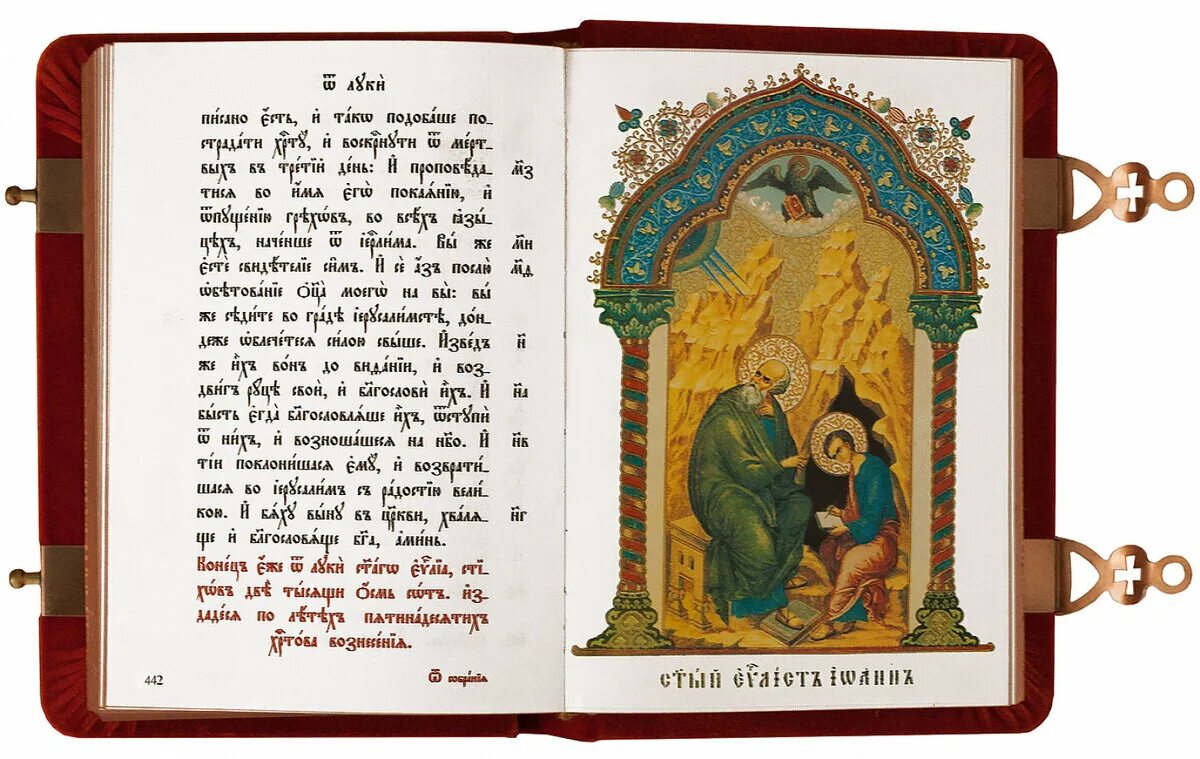 Ѿ лꙋкѝ
писано є҆́сть, и҆ та́кѡ подоба́ше по-
страда́ти хрⷭ҇тꙋ̀, и҆ воскрⷭ҇нꙋти ѿ ме́рт-
выхъ въ тре́тїй де́нь: И҆ проповѣ́да- м҃з
тисѧ во и҆́мѧ є҆гѡ̀ покаѧ́нїю, и҆
ѿпꙋще́нїю грѣхѡ́въ, во всѣ́хъ ꙗ҆зы́-
цѣхъ, наче́нше ѿ і҆ерⷭ҇ли́ма. Вы́ же м҃и
є҆стѐ свидѣ́телїе си̑мъ. И҆ сѐ а҆́зъ послю̀ м҃ѳ
ѡ҆бѣтова́нїе ѻ҆ц҃а̀ моегѡ̀ на вы̀: вы́
же сѣди́те во гра́дѣ і҆ерⷭ҇ꙋсали́мстѣ, до́н-
деже ѡ҆блече́тесѧ си́лою свы́ше. И҆зве́дъ н҃
же и҆̀хъ во́нъ до виѳа́нїи, и҆ воз-
дви́гъ рꙋ́цѣ своѝ, и҆ бл҃гословѝ и҆̀хъ. И҆ н҃а
бы́сть є҆гда̀ бл҃гословлѧ́ше и҆̀хъ, ѿстꙋпѝ
ѿ ни́хъ, и҆ возноша́шесѧ на нб҃о. И҆ н҃в
ті́и поклони́шасѧ є҆мꙋ̀, и҆ возврати́-
шасѧ во і҆ерꙋсали́мъ съ ра́достїю вели́-
кою. И҆ бѧ́хꙋ вы́нꙋ въ цр҃кви, хва́лѧ- н҃г
ще и҆ бл҃гословѧ́ще бг҃а, а҆ми́нь.
Коне́цъ є҆́же ѿ лꙋкѝ ст҃а́гѡ є҆ѵⷢ҇лїа, сті-
хѡ́въ двѣ̀ ты́сѧщи ѻ҆́смь сѡ́тъ. и҆з-
даде́сѧ по лѣ́тѣхъ пѧтина́десѧтихъ
хрⷭ҇то́ва вознесе́нїѧ.
442
Ѿ собра́нїѧ
ст҃ы́й є҆ѵⷢ҇лі́стъ і҆ѡа́ннъ